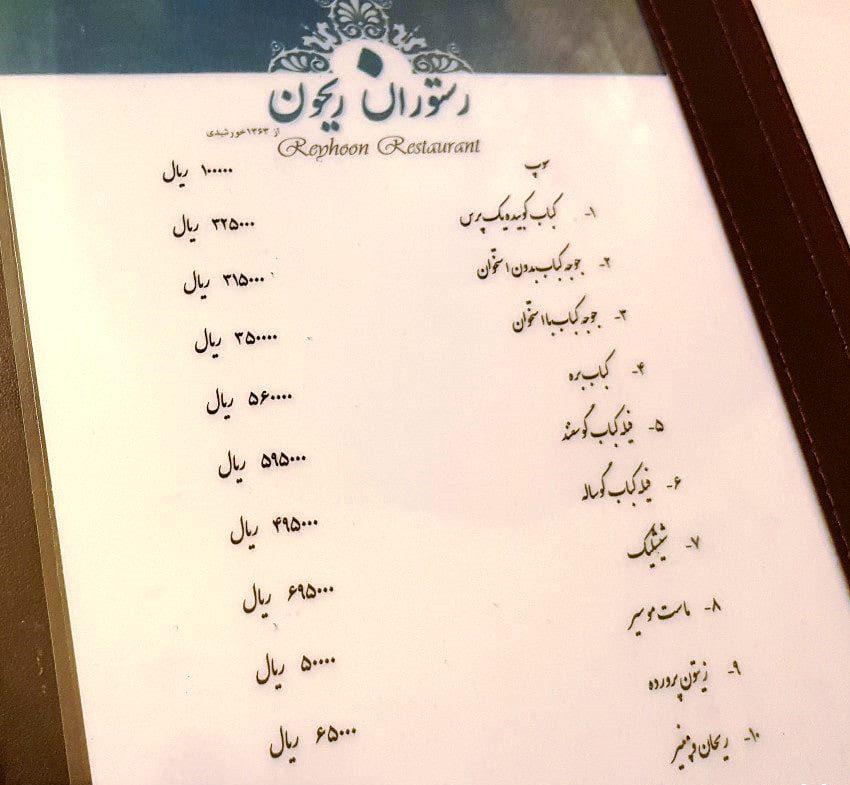 رستوران ریحون
از ۱۳۶۳ خورشیدی
Reyhoon Restaurant
سوپ ۱۰۰۰۰۰ ریال
۱- کباب کوبیده یک پرس ۳۲۵۰۰۰ ریال
۲- جوجه کباب بدون استخوان ۳۱۵۰۰۰ ریال
۳- جوجه کباب با استخوان ۳۵۰۰۰۰ ریال
۴- کباب بره ۵۶۰۰۰۰ ریال
۵- فیله کباب گوسفند ۵۹۵۰۰۰ ریال
۶- فیله کباب گوساله ۴۹۵۰۰۰ ریال
۷- شیشلیک ۶۹۵۰۰۰ ریال
۸- ماست موسیر ۵۰۰۰۰ ریال
۹- زیتون پرورده ۶۵۰۰۰ ریال
۱۰- ریحان و پنیر